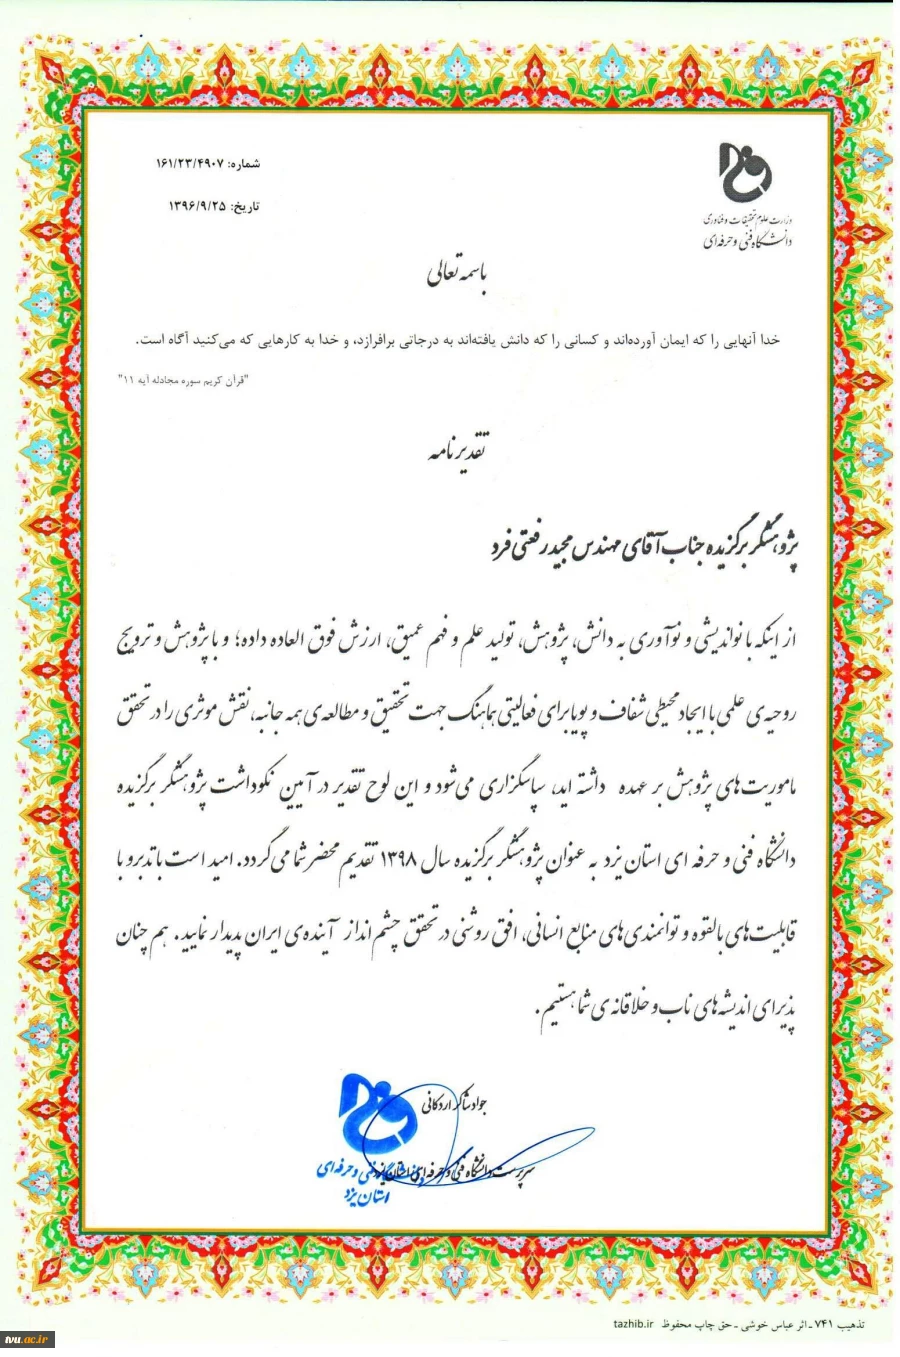 شماره: ۱۶۱/۲۳/۴۹۰۷
تاریخ: ۱۳۹۶/۹/۲۵
وزارت علوم تحقیقات و فناوری
دانشگاه فنی و حرفه‌ای
باسمه تعالی
خدا آنهایی را که ایمان آورده‌اند و کسانی را که دانش یافته‌اند به درجاتی برافرازد، و خدا به کارهایی که می‌کنید آگاه است.
"قرآن کریم سوره مجادله آیه ۱۱"
تقدیرنامه
پژوهشگر برگزیده جناب آقای مهندس مجید رفعتی فرد
از اینکه با نواندیشی و نوآوری به دانش، پژوهش، تولید علم و فهم عمیق، ارزش فوق العاده داده؛ و با پژوهش و ترویج
روحیه‌ی علمی با ایجاد محیطی شفاف و پویا برای فعالیتی هماهنگ جهت تحقیق و مطالعه‌ی همه جانبه، نقش موثری را در تحقق
ماموریت‌های پژوهش بر عهده داشته اید، سپاسگزاری می‌شود و این لوح تقدیر در آیین نکوداشت پژوهشگر برگزیده
دانشگاه فنی و حرفه ای استان یزد به عنوان پژوهشگر برگزیده سال ۱۳۹۸ تقدیم محضر شما می‌گردد. امید است با تدبر و با
قابلیت‌های بالقوه و توانمندی‌های منابع انسانی، افق روشنی در تحقق چشم انداز آینده‌ی ایران پدیدار نمایید. هم چنان
پذیرای اندیشه‌های ناب و خلاقانه‌ی شما هستیم.
جواد شاکر اردکانی
سرپرست دانشگاه فنی و حرفه ای استان یزد
دانشگاه فنی و حرفه‌ای
استان یزد
تذهیب ۷۴۱ ـ اثر عباس خوشی ـ حق چاپ محفوظ tazhib.ir
tvu.ac.ir